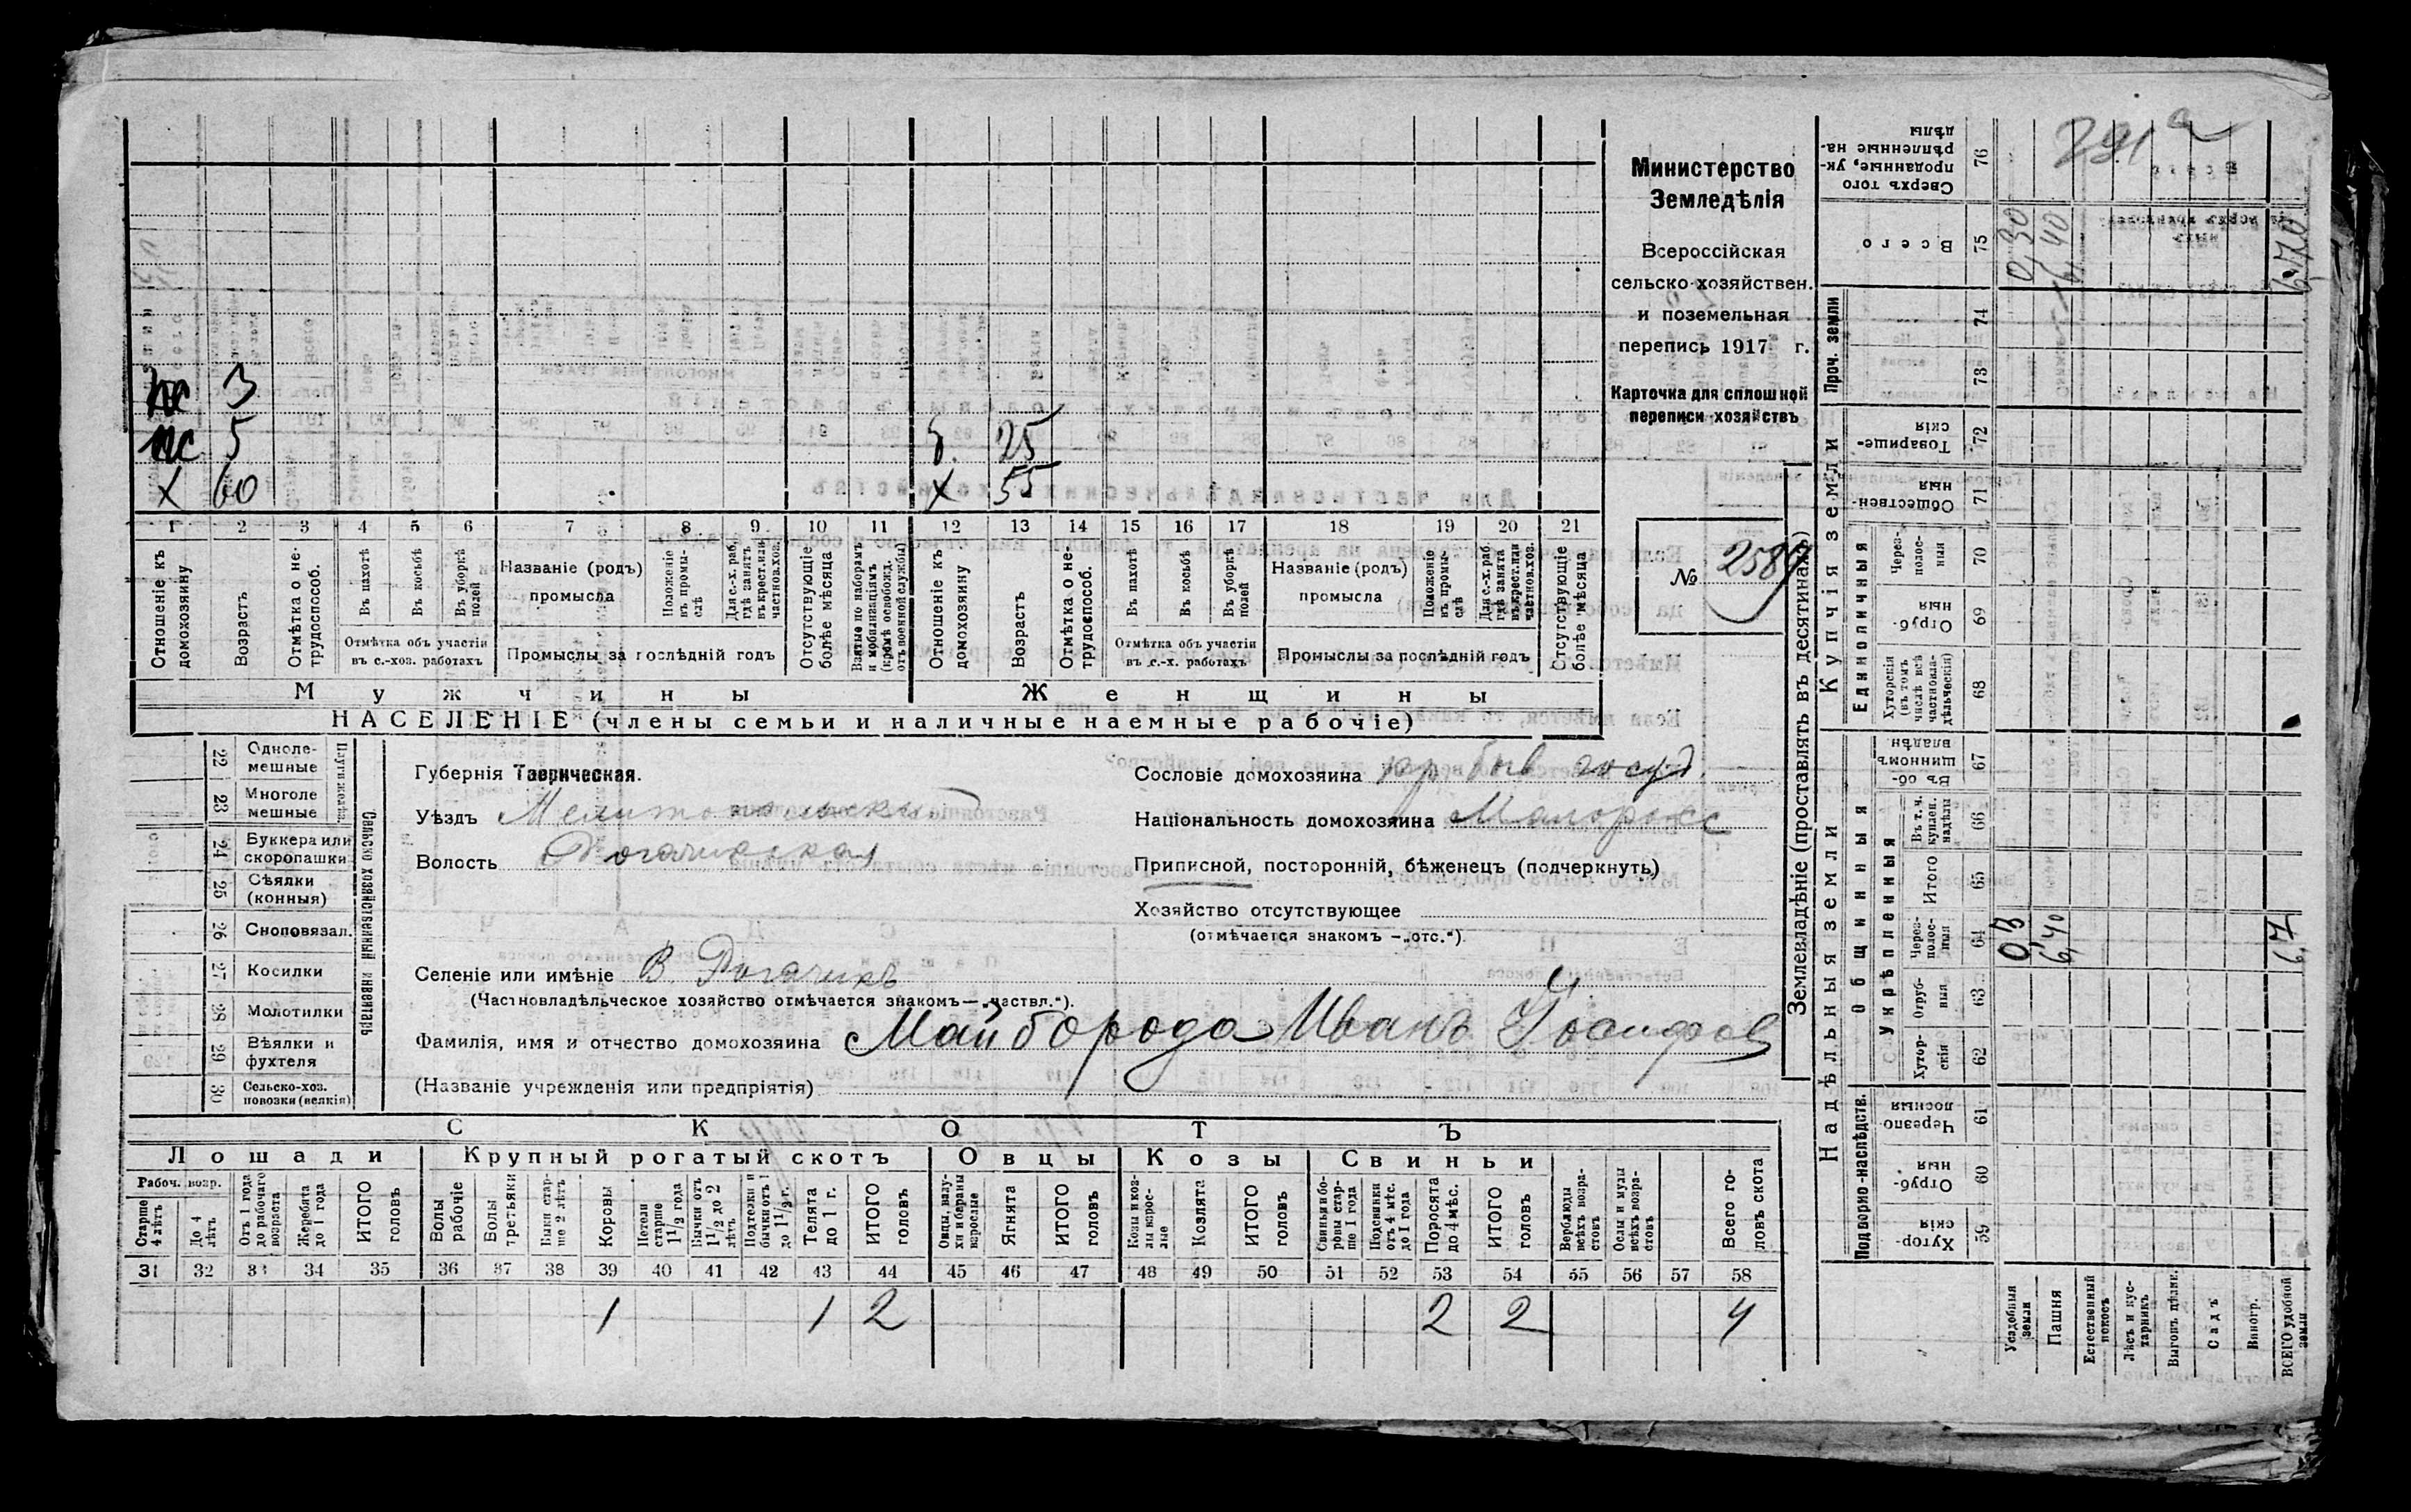 291 а
Министерство
Земледѣлія
Всероссійская
сельско-хозяйствен.
и поземельная
перепись 1917 г.
Карточка для сплошной
переписи хозяйствъ
№ 2587
пс 3
пс 5
Х 60
25
Х 55
1 2 3 4 5 6 7 8 9 10 11 12 13 14 15 16 17 18 19 20 21
Отношеніе къ домохозяину
Возрастъ
Отмѣтка о не-трудоспособ.
Въ пахотѣ
Въ косьбѣ
Въ уборкѣ полей
Отмѣтка объ участіи
въ с.-хоз. работахъ
Названіе (родъ)
промысла
Положеніе въ промы-слѣ
Для с.-х. раб. гдѣ занятъ въ крест. или частнов. хоз.
Промыслы за послѣдній годъ
Отсутствующіе болѣе мѣсяца
Взятые по наборамъ и мобилизаціямъ (кромѣ освобожд. отъ военной службы)
Отношеніе къ домохозяину
Возрастъ
Отмѣтка о не-трудоспособ.
Въ пахотѣ
Въ косьбѣ
Въ уборкѣ полей
Отмѣтка объ участіи
въ с.-х. работахъ
Названіе (родъ)
промысла
Положеніе въ промы-слѣ
Для с.-х. раб. гдѣ занята въ крест. или частнов. хоз.
Промыслы за послѣдній годъ
Отсутствующіе болѣе мѣсяца
Мужчины Женщины
НАСЕЛЕНІЕ (члены семьи и наличные наемные рабочіе)
22 Одноле-мешные
23 Многоле мешные
Плуги желѣзн.
24 Буккера или скоропашки
25 Сѣялки (конныя)
26 Сноповязал.
27 Косилки
28 Молотилки
29 Вѣялки и фухтеля
30 Сельско-хоз. повозки (великія)
Сельско хозяйственный инвентарь
Губернія Таврическая.
Уѣздъ Мелитопольскій
Волость Рогачикская
Селеніе или имѣніе В. Рогачикъ
(Частновладѣльческое хозяйство отмѣчается знакомъ—„частвл.“).
Сословіе домохозяина кр. быв госуд.
Національность домохозяина Малоросс
Приписной, посторонній, бѣженецъ (подчеркнуть)
Хозяйство отсутствующее
(отмѣчается знакомъ —„отс.“).
Фамилія, имя и отчество домохозяина Майборода Иванъ Іосифов
(Названіе учрежденія или предпріятія)
СКОТЪ
Лошади Крупный рогатый скотъ Овцы Козы Свиньи
Рабоч. возр.
Старше 4 лѣтъ
До 4 лѣтъ
Отъ 1 года до рабочаго возраста
Жеребята до 1 года
ИТОГО головъ
Волы рабочіе
Волы третьяки
Быки стар-ше 2 лѣтъ
Коровы
Нетели старше 1 1/2 года
Бычки отъ 1 1/2 до 2 лѣтъ
Подтелки и бычки отъ 1 до 1 1/2 г.
Телята до 1 г.
ИТОГО головъ
Овцы, валу-хи и бараны взрослые
Ягнята
ИТОГО головъ
Козы и коз-лы взрос-лые
Козлята
ИТОГО головъ
Свиньи и бо-ровы стар-ше 1 года
Подсвинки отъ 4 мѣс. до 1 года
Поросята до 4 мѣс.
ИТОГО головъ
Верблюды всѣхъ возра-стовъ
Ослы и мулы всѣхъ возра-стовъ
Всего го-ловъ скота
31 32 33 34 35 36 37 38 39 40 41 42 43 44 45 46 47 48 49 50 51 52 53 54 55 56 57 58
1 1 2 2 2 4
Землевладѣніе (проставлять въ десятинахъ)
Надѣльныя земли Купчія земли Проч. земли
Подворно-наслѣдств.
Общинныя
Укрѣпленныя
Единоличныя
Хутор-скія 59
Отруб-ныя 60
Черезпо-лосныя 61
Хутор-скія 62
Отруб-ныя 63
Через-полос-ныя 64
Итого 65
Въ т. ч. куплен. надѣлы 66
Въ об-щинномъ владѣн. 67
Хуторскія (въ томъ числѣ всѣ частновла-дѣльческія) 68
Отруб-ныя 69
Через-полос-ныя 70
Обществен-ныя 71
Товарище-скія 72
73
74
Всего 75
Сверхъ того проданные, ук-рѣпленные на-дѣлы 76
Усадебныя земли 03 0,30
Пашня 6,40 6,40
Естественный покосъ
Лѣсъ и кус-тарникъ
Выгонъ дѣлян.
Садъ
Виногр.
ВСЕГО удобной земли 6,7 6,70